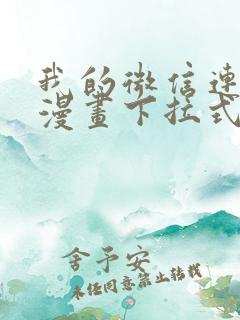 我的微信连
漫畫下拉式
舍予安
未经同意禁止转载